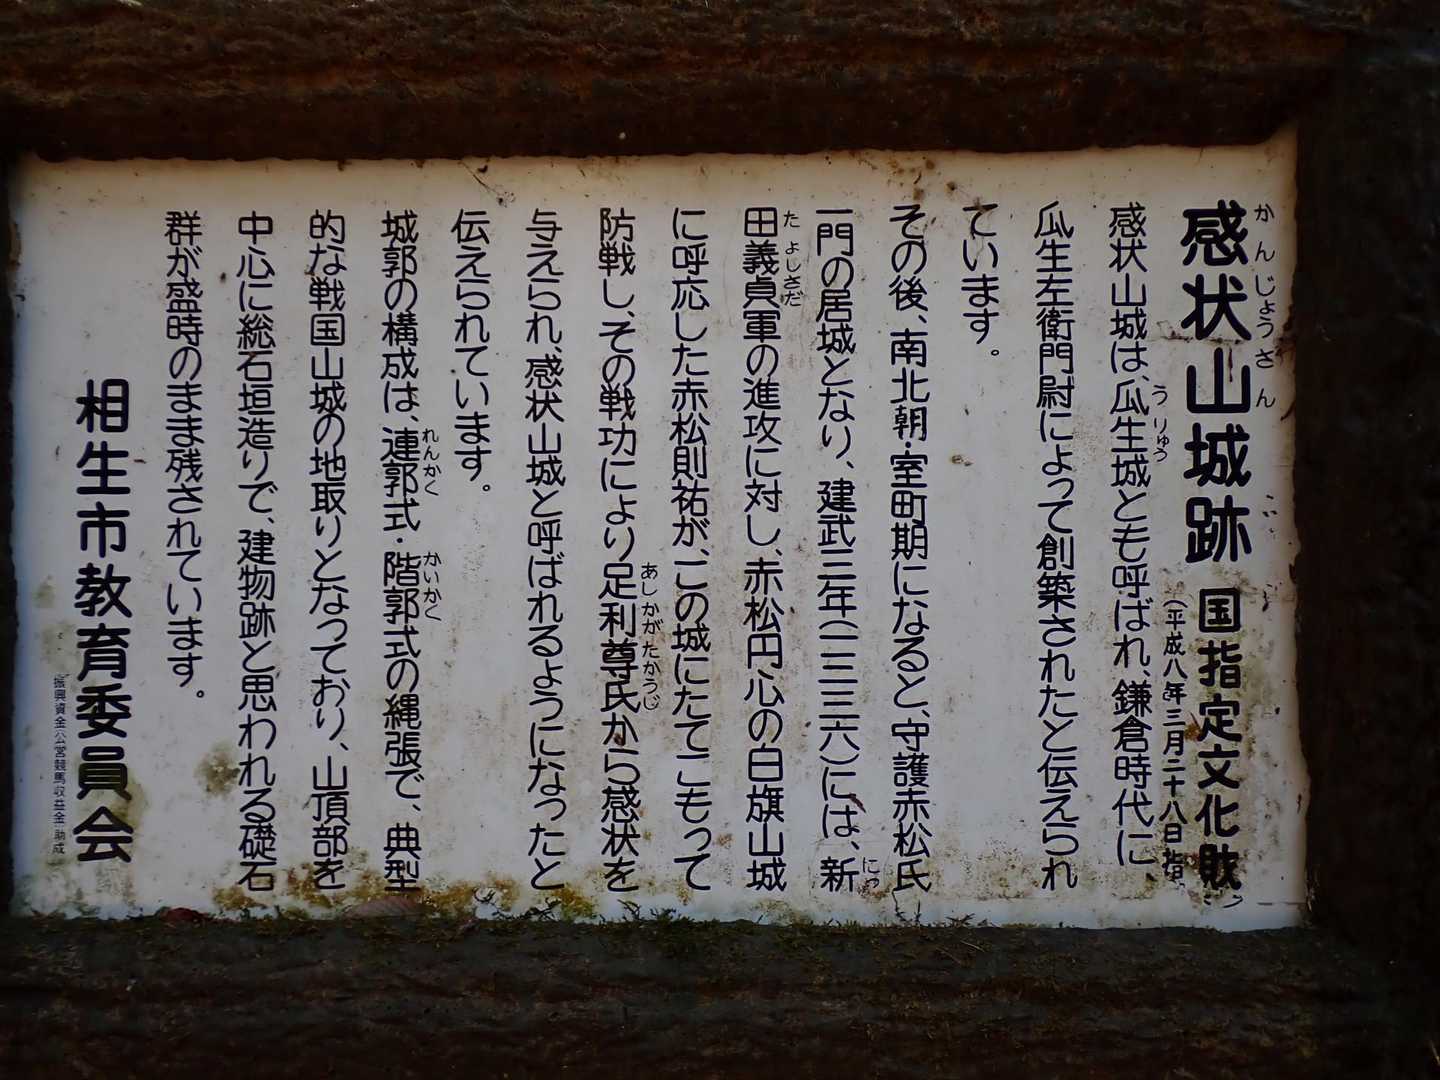 感状山城跡 国指定文化財
かんじょうさん
(平成八年三月二十八日指
感状山城は、瓜生城とも呼ばれ、鎌倉時代に、
うりゅう
瓜生左衛門尉によって創築されたと伝えられ
ています。
その後、南北朝・室町期になると、守護赤松氏
一門の居城となり、建武三年(一三三六)には、新
にっ
田義貞軍の進攻に対し、赤松円心の白旗山城
たよしさだ
に呼応した赤松則祐が、この城にたてこもって
防戦し、その戦功により足利尊氏から感状を
あしかがたかうじ
与えられ、感状山城と呼ばれるようになったと
伝えられています。
城郭の構成は、連郭式・階郭式の縄張で、典型
れんかく かいかく
的な戦国山城の地取りとなっており、山頂部を
中心に総石垣造りで、建物跡と思われる礎石
群が盛時のまま残されています。
相生市教育委員会
振興資金(公営競馬収益金)助成